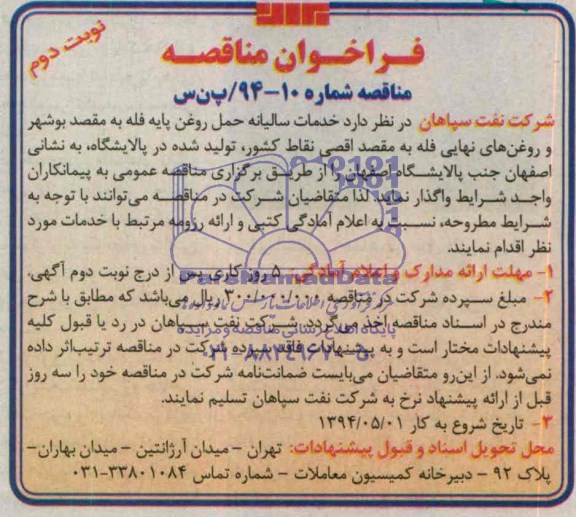 نوبت دوم
فراخوان مناقصه
مناقصه شماره ۱۰-۹۴/پ‌ن‌س
شرکت نفت سپاهان در نظر دارد خدمات سالیانه حمل روغن پایه فله به مقصد بوشهر
و روغن‌های نهایی فله به مقصد اقصی نقاط کشور، تولید شده در پالایشگاه، به نشانی
اصفهان جنب پالایشگاه اصفهان را از طریق برگزاری مناقصه عمومی به پیمانکاران
واجد شرایط واگذار نماید. لذا متقاضیان شرکت در مناقصه می‌توانند با توجه به
شرایط مطروحه، نسبت به اعلام آمادگی کتبی و ارائه رزومه مرتبط با خدمات مورد
نظر اقدام نمایند.
۱- مهلت ارائه مدارک و اعلام آمادگی: ۵ روز کاری پس از درج نوبت دوم آگهی.
۲- مبلغ سپرده شرکت در مناقصه ۳۰۰/۰۰۰/۰۰۰ ریال می‌باشد که مطابق با شرح
مندرج در اسناد مناقصه اخذ می‌گردد. شرکت نفت سپاهان در رد یا قبول کلیه
پیشنهادات مختار است و به پیشنهادات فاقد سپرده شرکت در مناقصه ترتیب‌اثر داده
نمی‌شود. از این‌رو متقاضیان می‌بایست ضمانت‌نامه شرکت در مناقصه خود را سه روز
قبل از ارائه پیشنهاد نرخ به شرکت نفت سپاهان تسلیم نمایند.
۳- تاریخ شروع به کار ۱۳۹۴/۰۵/۰۱
محل تحویل اسناد و قبول پیشنهادات: تهران - میدان آرژانتین - میدان بهاران-
پلاک ۹۲ - دبیرخانه کمیسیون معاملات - شماره تماس ۳۳۸۰۱۰۸۴-۰۳۱
ParsNamadData
پایگاه اطلاع رسانی مناقصه و مزایده
۰۲۱-۸۸۳۴۹۶۷۰-۵